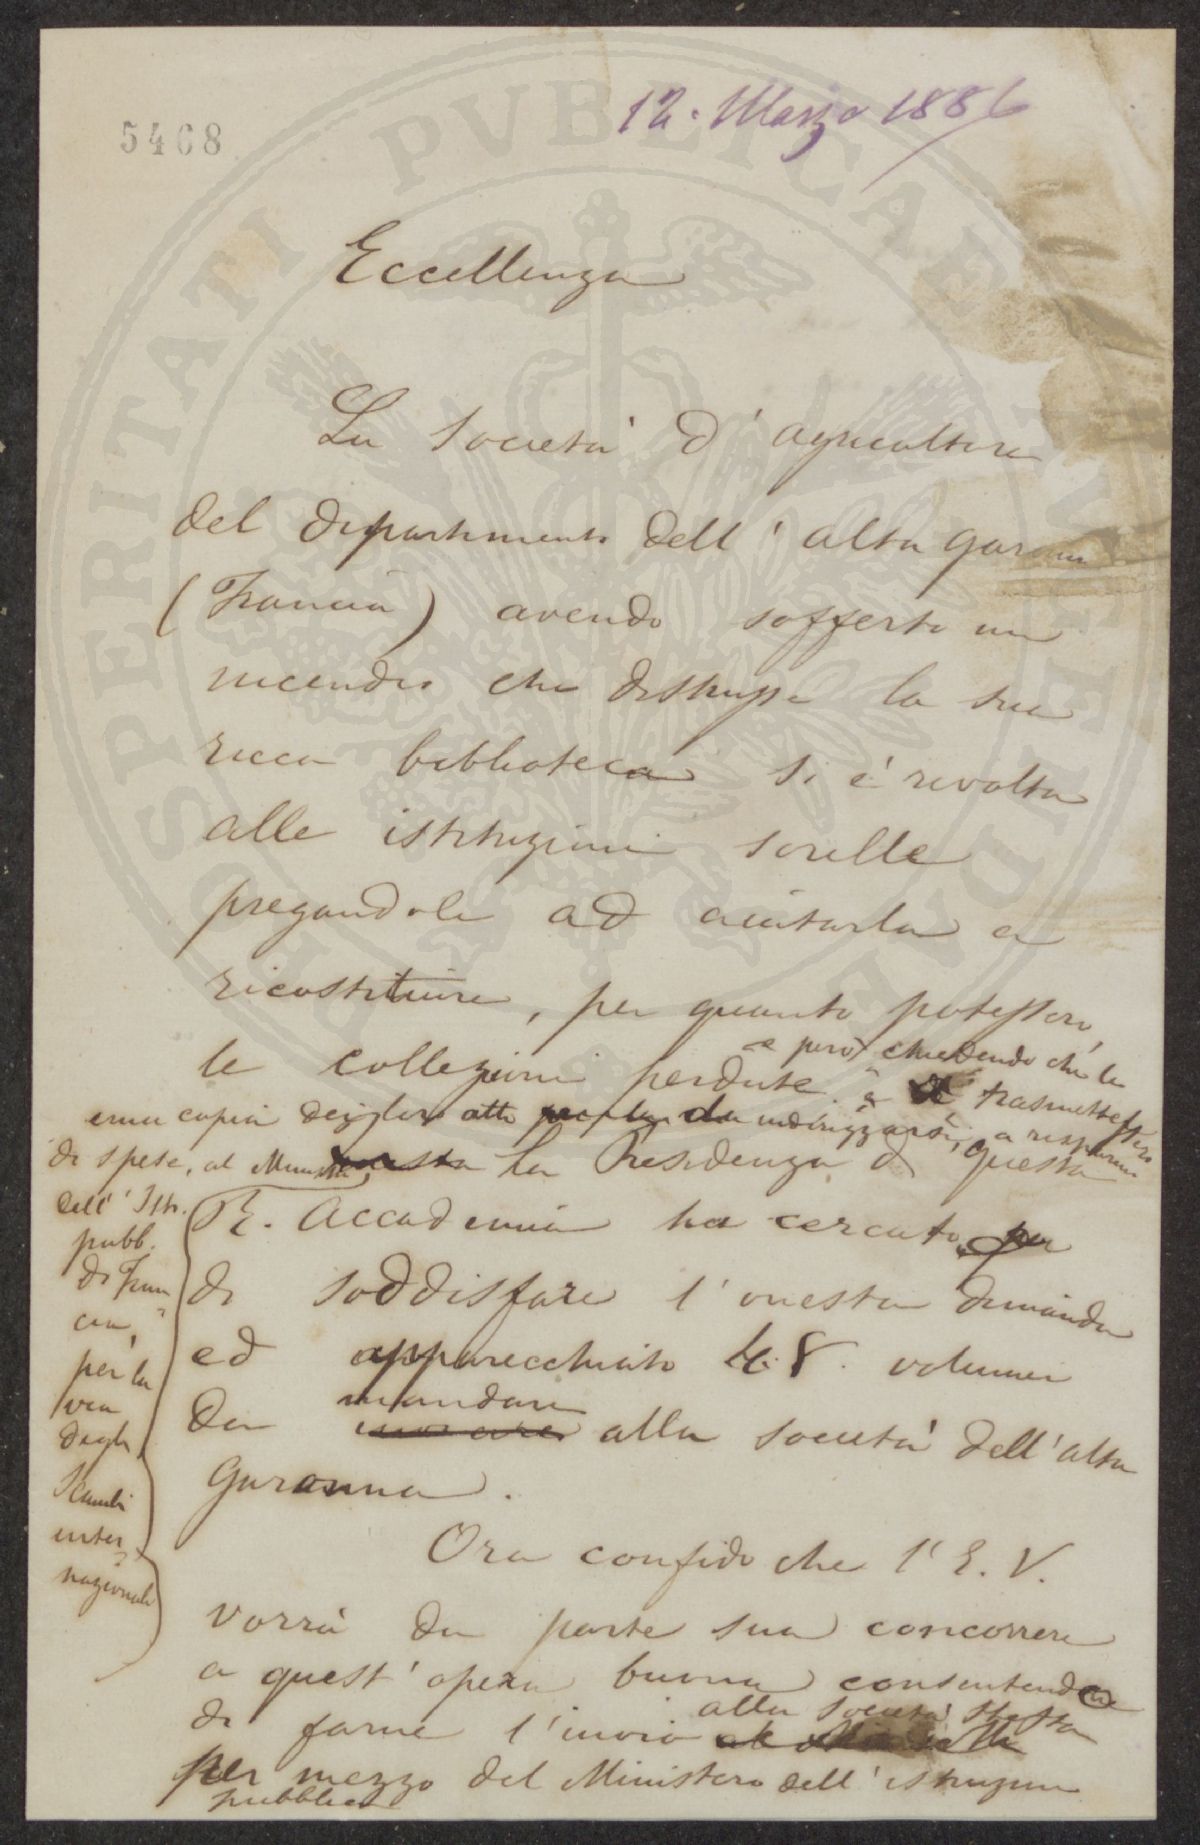 5468
12. Marzo 1886
Eccellenza
La Società d'agricoltura
del dipartimento dell'alta Garonna
(Francia) avendo sofferto un
incendio che distrusse la sua
ricca biblioteca si è rivolta
alle istituzioni sorelle
pregandole ad aiutarla a
ricostituire, per quanto potessero,
le collezioni perdute
e però chiedendo che le
trasmettessero
una copia degli loro atti da indirizzarsi, a risparmio
di spese, al Ministro
dell'Istr.
pubb.
di Fran
cia,
per la
via
degli
Scambi
inter
nazionali
La Presidenza di questa
R. Accademia ha cercato
di soddisfare l'onesta dimanda
ed apparecchiato 48. volumi
da mandare alla società dell'alta
Garonna.
Ora confido che l'E. V.
vorrà da parte sua concorrere
a quest'opera buona consentendo
di farne l'invio alla società stessa
per mezzo del Ministero dell'istruzione
pubblica
PROSPERITATI PVBLICAE AVGENDAE